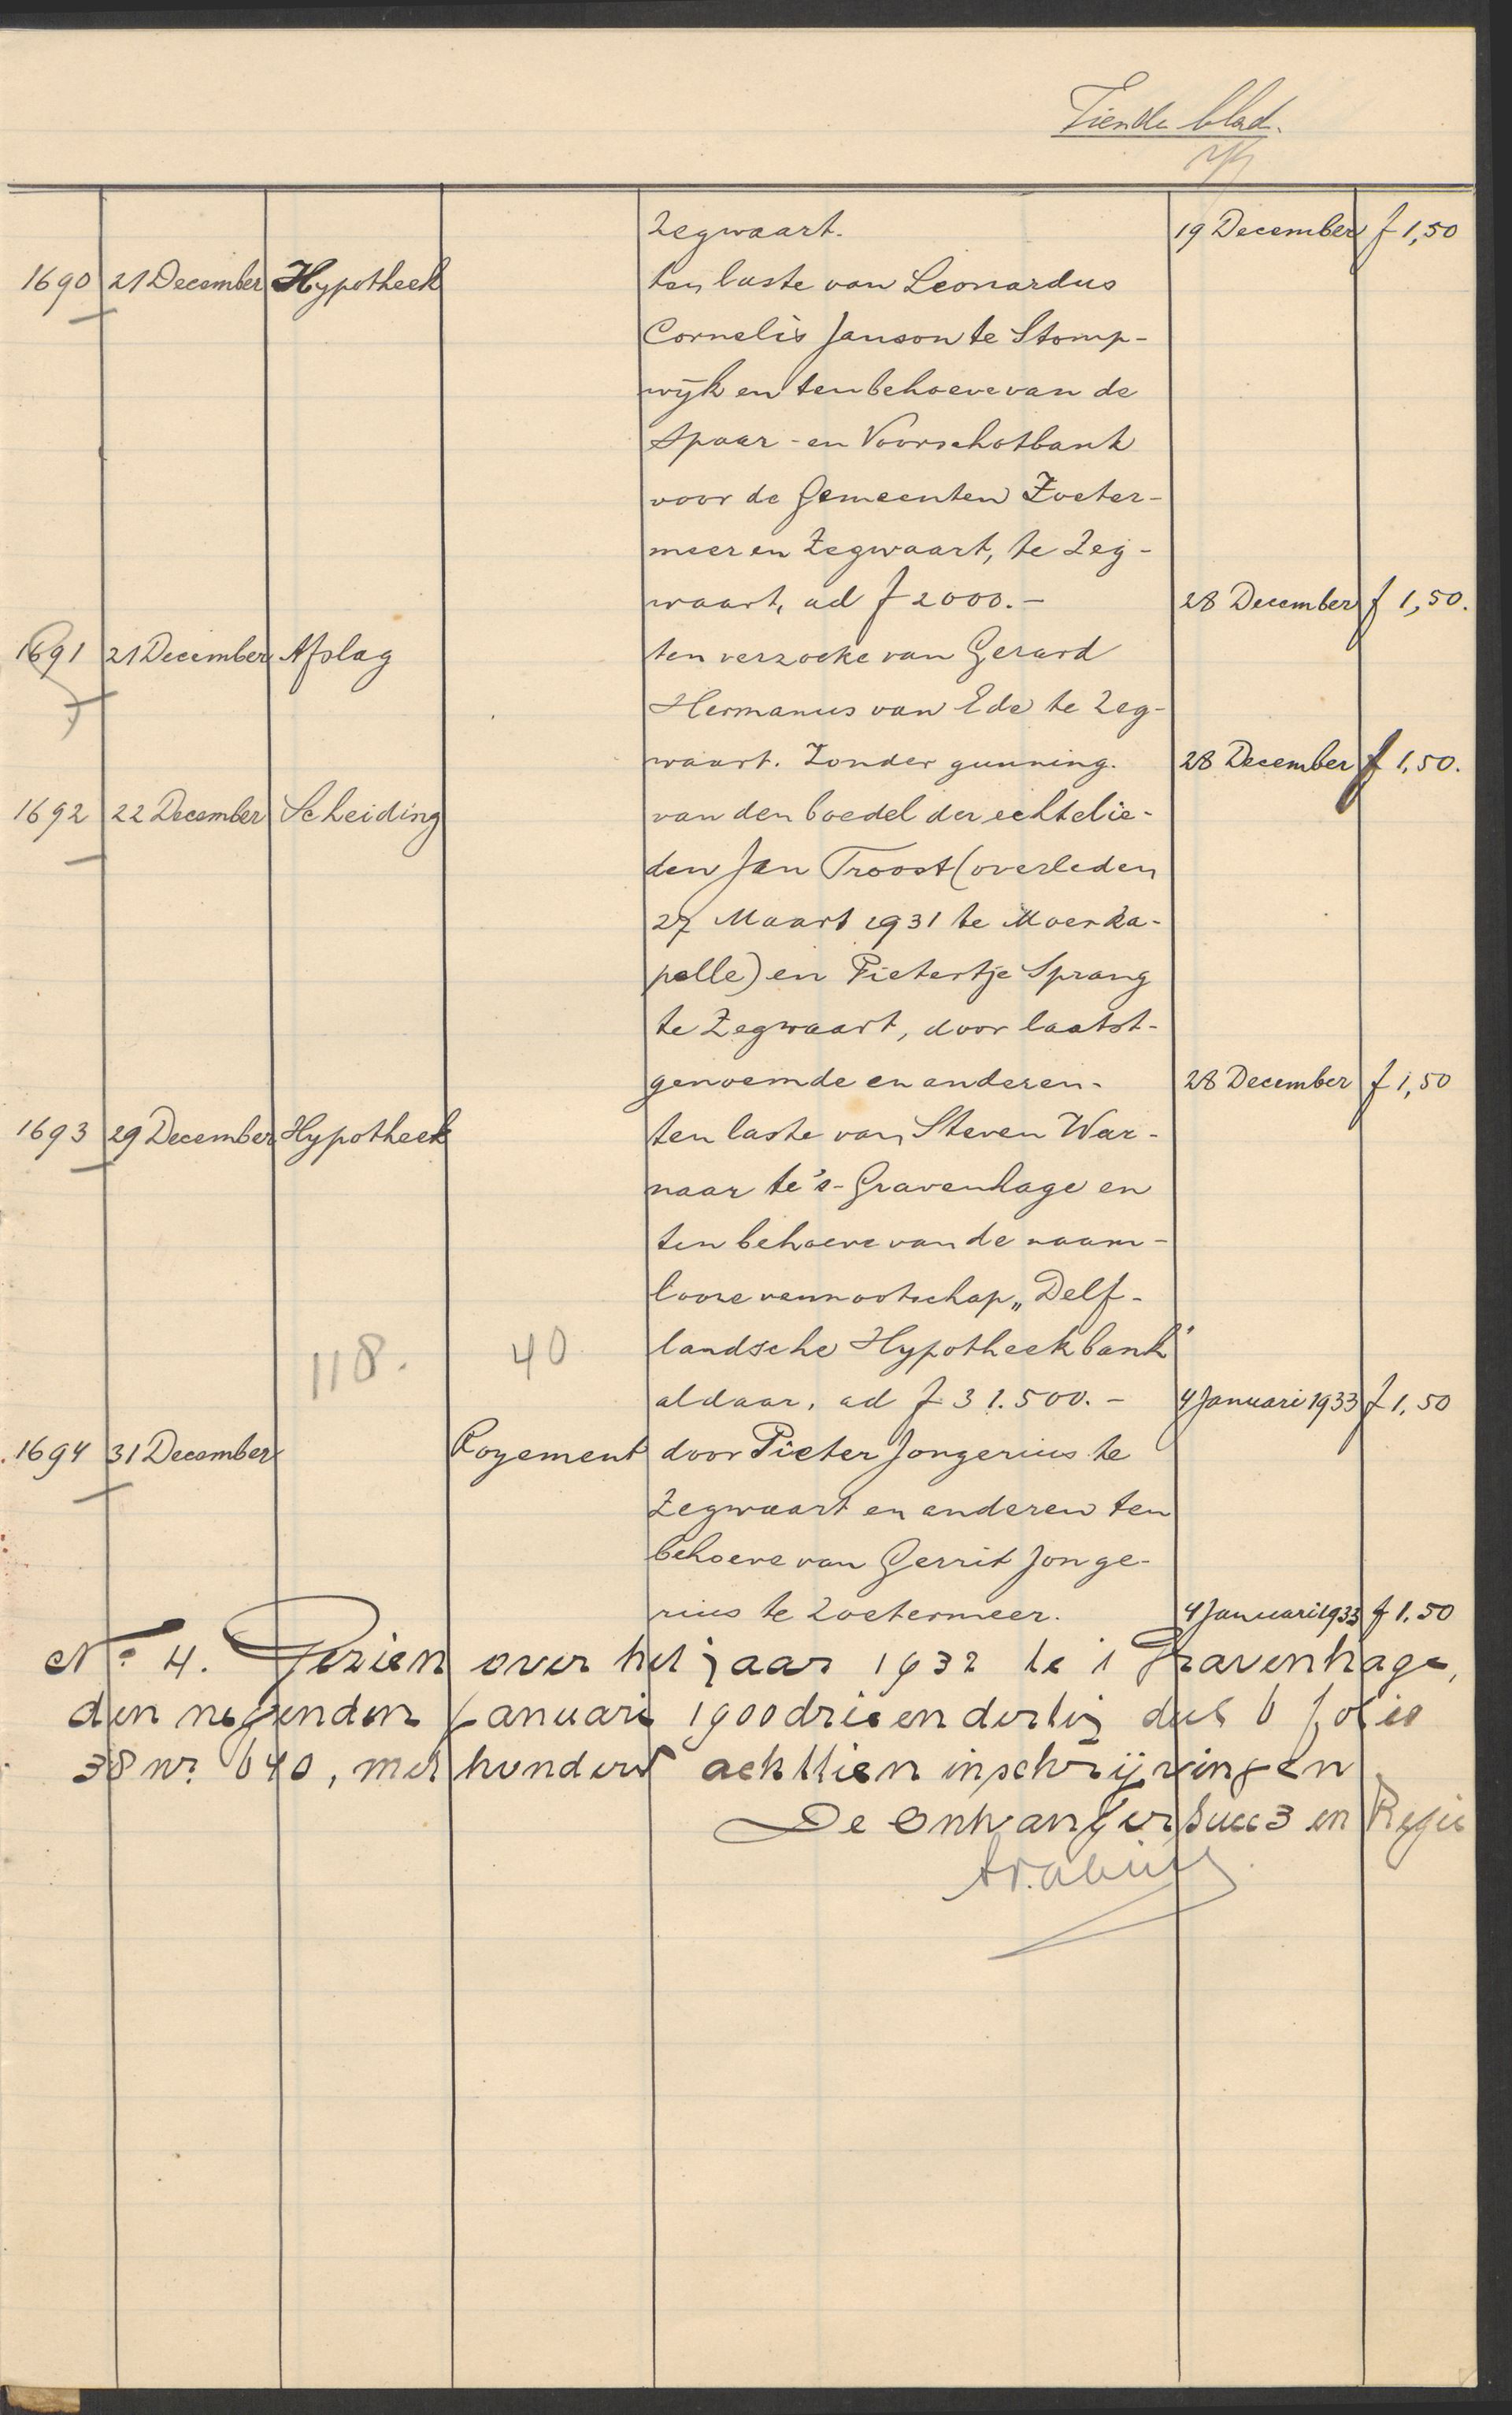 Tiende blad.
Zegwaart. 19 December f 1,50
1690 21 December Hypotheek ten laste van Leonardus
Cornelis Janson te Stomp-
wijk en ten behoeve van de
Spaar- en Voorschotbank
voor de Gemeenten Zoeter-
meer en Zegwaart, te Zeg-
waart, ad f 2000.- 28 December f 1,50.
1691 21 December Afslag ten verzoeke van Gerard
Hermanus van Ede te Zeg-
waart. Zonder gunning. 28 December f 1,50.
1692 22 December Scheiding van den boedel der echtelie-
den Jan Troost (overleden
27 Maart 1931 te Moerka-
pelle) en Pietertje Sprang
te Zegwaart, door laatst-
genoemde en anderen. 28 December f 1,50
1693 29 December Hypotheek ten laste van Steven War-
naar te 's-Gravenhage en
ten behoeve van de naam-
looze vennootschap „Delf-
118. 40 landsche Hypotheekbank"
aldaar, ad f 31.500.- 4 Januari 1933 f 1.50
1694 31 December Royement door Pieter Jongerius te
Zegwaart en anderen ten
behoeve van Gerrit Jonge-
rius te Zoetermeer. 4 Januari 1933 f 1.50
No 4. Gezien over het jaar 1932 te 's Gravenhage,
den negenden Januari 1900 drie en dertig deel 6 folio
38 nr. 640, met honderd achttien inschrijvingen
De Ontvanger Succ 3 en Regie